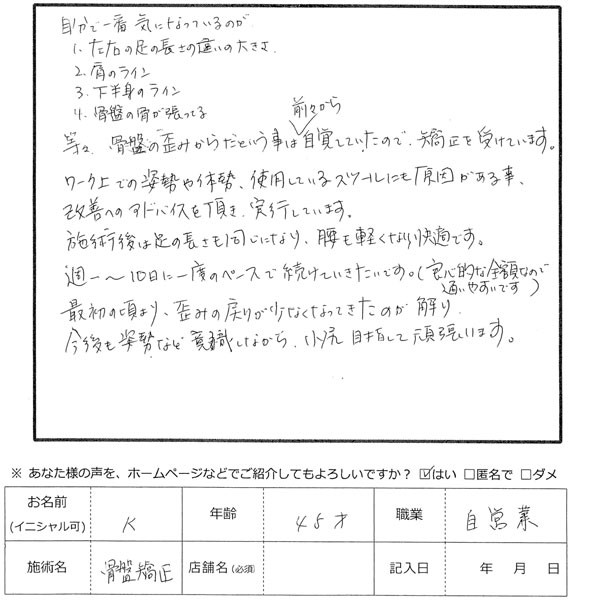 自分で一番気になっているのが
1. 左右の足の長さの違いの大きさ
2. 肩のライン
3. 下半身のライン
4. 骨盤の骨が張ってる
前々から
等々、骨盤の歪みからだという事は自覚していたので、矯正を受けています。
ワーク上での姿勢や体勢、使用しているスツールにも原因がある事、
改善へのアドバイスを頂き、実行しています。
施術後は足の長さも同じになり、腰も軽くなり快適です。
週一〜10日に一度のペースで続けていきたいです。(良心的な金額なので
通いやすいです)
最初の頃より、歪みの戻りが少なくなってきたのが解り、
今後も姿勢など意識しながら、小尻目指して頑張います。
※ あなた様の声を、ホームページなどでご紹介してもよろしいですか? ☑はい □匿名で □ダメ
お名前 (イニシャル可) K 年齢 45才 職業 自営業
施術名 骨盤矯正 店舗名(必須) 記入日 年 月 日